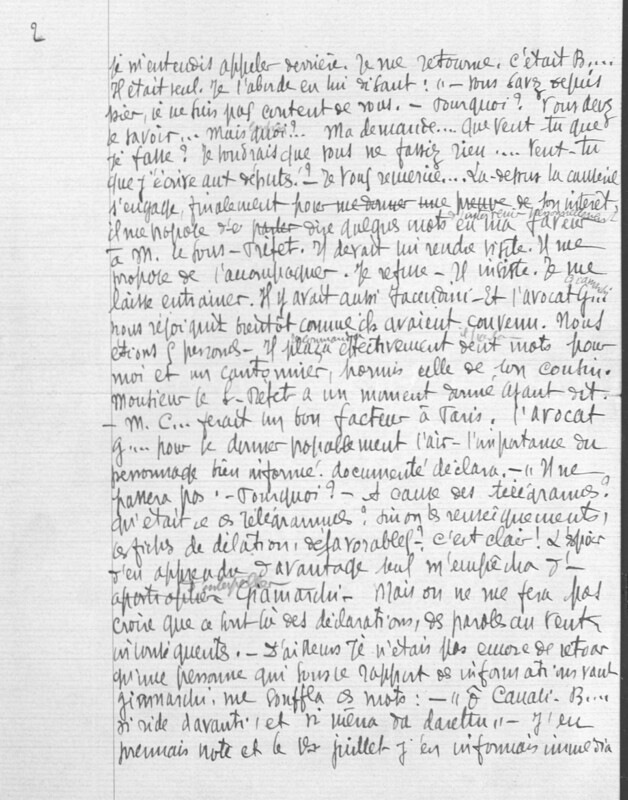 2
je m'entendis appeler derrière. Je me retourne. c'était B....
Il était seul. Je l'aborde en lui disant : "– Vous savez depuis
hier, je ne suis pas content de vous. – Pourquoi ? Vous devez
le savoir... Mais quoi ?.. Ma demande.... Que veut-tu que
je fasse ? Je voudrais que vous ne fassiez rien .... Veut-tu
que j'écrive aux députés ? – Je vous remercie.... Là-dessus la causerie
s'engage, finalement pour me donner une preuve de son intérêt,
il me propose de parler dire quelques mots en ma faveur
à M. le Sous-Préfet. Il devait lui rendre visite. Il me
propose de l'accompagner. Je refuse – Il insiste. Je me
laisse entrainer. Il y avait aussi – Et l'avocat G...
nous rejoignit bientôt comme ils avaient convenu. Nous
étions 5 personnes – Il plaça effectivement deux mots pour
moi et un cantonnier, hormis celle de son cousin.
Monsieur le S-Préfet a un moment donné ayant dit.
– M. C... ferait un bon facteur à Paris. l'avocat
G... pour se donner probablement l'air – l'importance du
personnage bien informé. documenté déclara. – "Il ne
passera pas. – Pourquoi ? – A cause des télégrammes ?
Qu'était ce ces télégrammes ? sinon les renseignements,
les fiches de délation, défavorables ? c'est clair ! L'espoir
d'en apprendre d'avantage seul m'empêcha d'
interpeller
apostropher Giamarchi – Mais on ne me fera pas
croire que ce sont là des déclarations, des paroles au vent
inconséquents. – D'ailleurs je n'étais pas encore de retour
qu'une personne qui sous le rapport des informations vaut
Giammarchi. me souffla ces mots : – "Ô Canali. B....
si ride davanti, et si mena da daretu" – J'en
prennais note et le 1er juillet j'en informais immédia